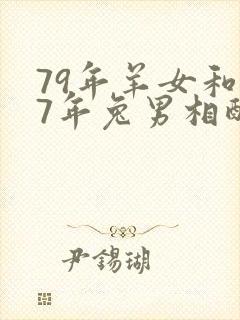 79年羊女和
7年兔男相配
尹锡瑚